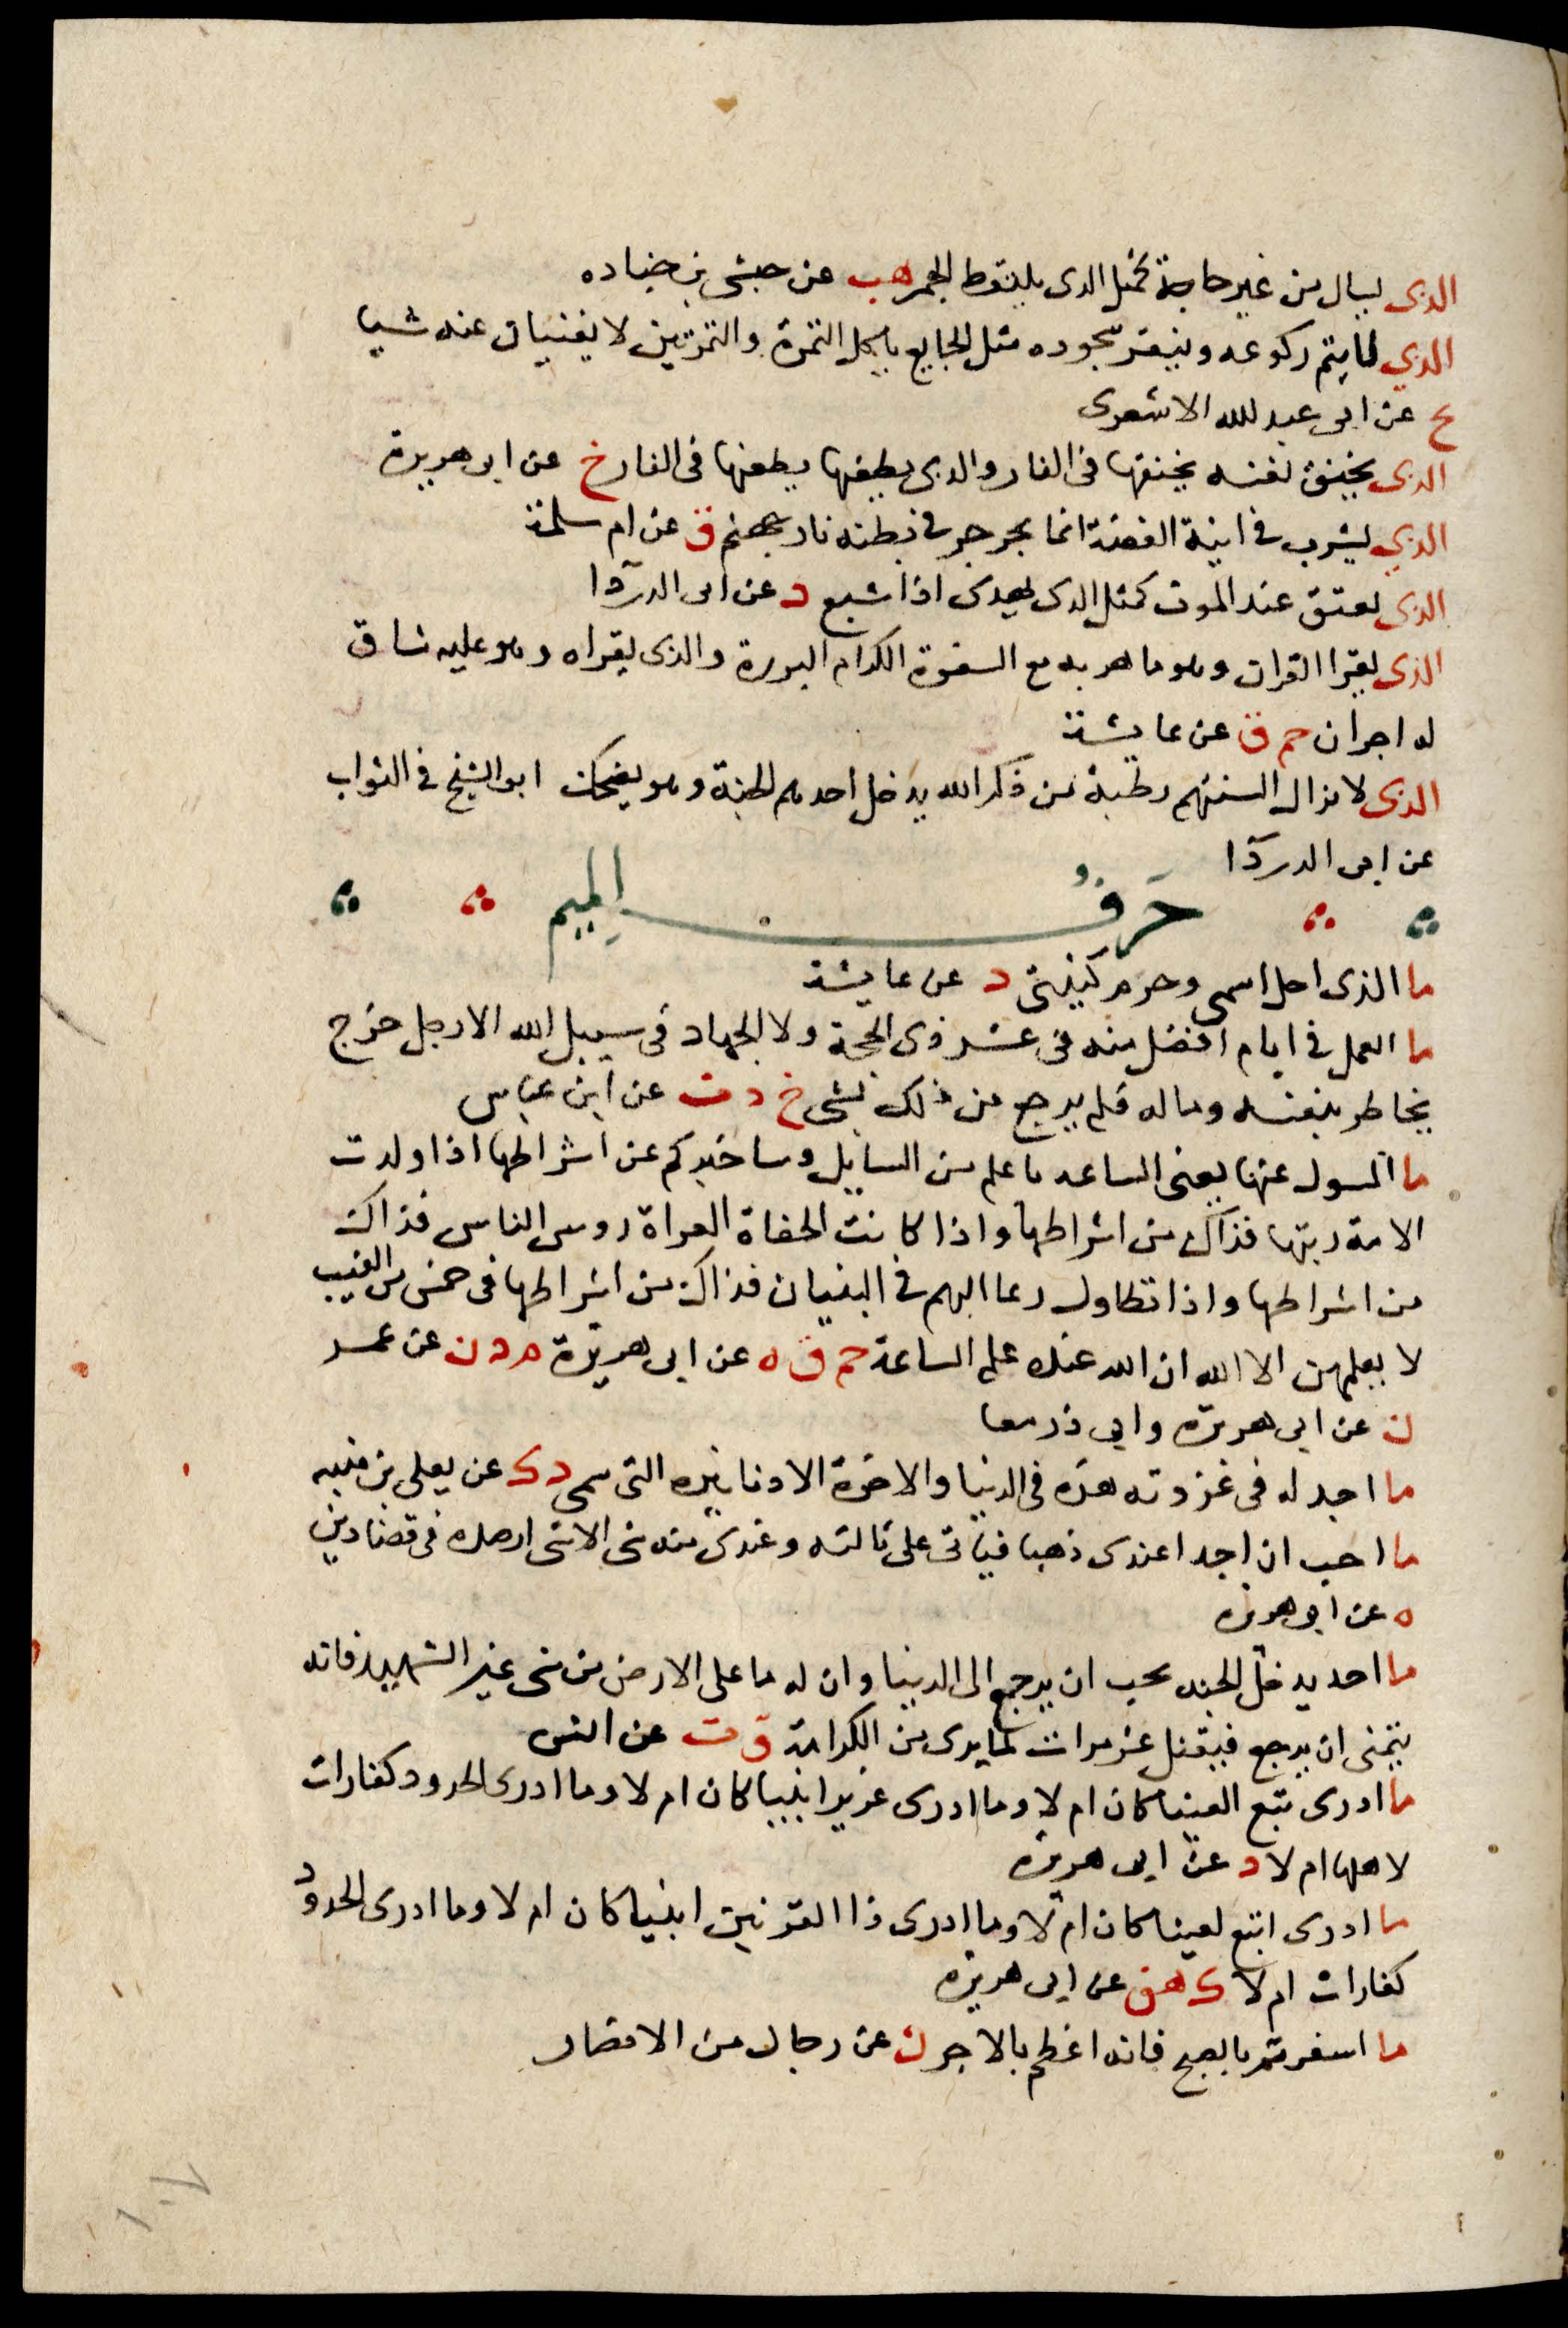 الذى يسال من غير حاجة كمثل الدى يلتقط الجمر هب عن حبشى بن جناده
الدي لا يتم ركوعه وينقر سجوده مثل الجايع ياكل التمرة والتمرتين لا يغنيان عنه شيا
ع عن ابى عبد الله الاشعرى
الدى يخنق نفسه يخنقها فى النار والدى يطعنها يطعنها فى النار خ عن ابى هريرة
الدي يشرب فى انية الفضة انما يجرجر فى بطنه نار جهنم ق عن ام سلمة
الذى يعتق عند الموت كمثل الدى يهدى اذا شبع د عن ابى الدردآ
الذى يقرا القران وهو ماهر به مع السفرة الكرام البررة والذى يقراه وهو عليه شاق
له اجران حم ق عن عايشة
الذى لا تزال السنتهم رطبة من ذكر الله يدخل احدهم الجنة وهو يضحك ابو الشيخ فى الثواب
عن ابى الدردآ
حَرفُ المِيم
ما الذى احل اسمى وحرم كنيتى د عن عايشة
ما العمل فى ايام افضل منه فى عشر ذى الحجة ولا الجهاد فى سبيل الله الا رجل خرج
يخاطر بنفسه وماله فلم يرجع من ذلك بشى خ د ت عن ابن عباس
ما المسول عنها يعنى الساعه باعلم من السايل وساخبركم عن اشراطها اذا ولدت
الامة ربتها فذاك من اشراطها واذا كانت الحفاة العراة روس الناس فذاك
من اشراطها واذا تطاول رعا البهم فى البنيان فذاك من اشراطها فى خمس من الغيب
لا يعلمهن الا الله ان الله عنده علم الساعة حم ق ه عن ابى هريرة م د ن عن عمر
ن عن ابى هريرة وابى ذر معا
ما اجد له فى غزوته هذه فى الدنيا والاخرة الا دنانيره التى سمى د ك عن يعلى بن منيه
ما احب ان احدا عندى ذهبا فياتى على ثالثه وعندى منه شى الا شى ارصده فى قضا دين
ه عن ابى هريره
ما احد يدخل الجنه يحب ان يرجع الى الدنيا وان له ما على الارض من شى غير الشهيد فانه
يتمنى ان يرجع فيقتل عشر مرات لما يرى من الكرامة ق ت عن انس
ما ادرى تبع العينا كان ام لا وما ادرى عزيرا نبيا كان ام لا وما ادرى الحدود كفارات
لاهلها ام لا د عن ابى هريره
ما ادرى اتبع لعينا كان ام لا وما ادرى ذا القرنين انبيا كان ام لا وما ادرى الحدود
كفارات ام لا ك هق عن ابى هريره
ما اسفرتم بالصبح فانه اعظم بالاجر ن عن رجال من الانصار